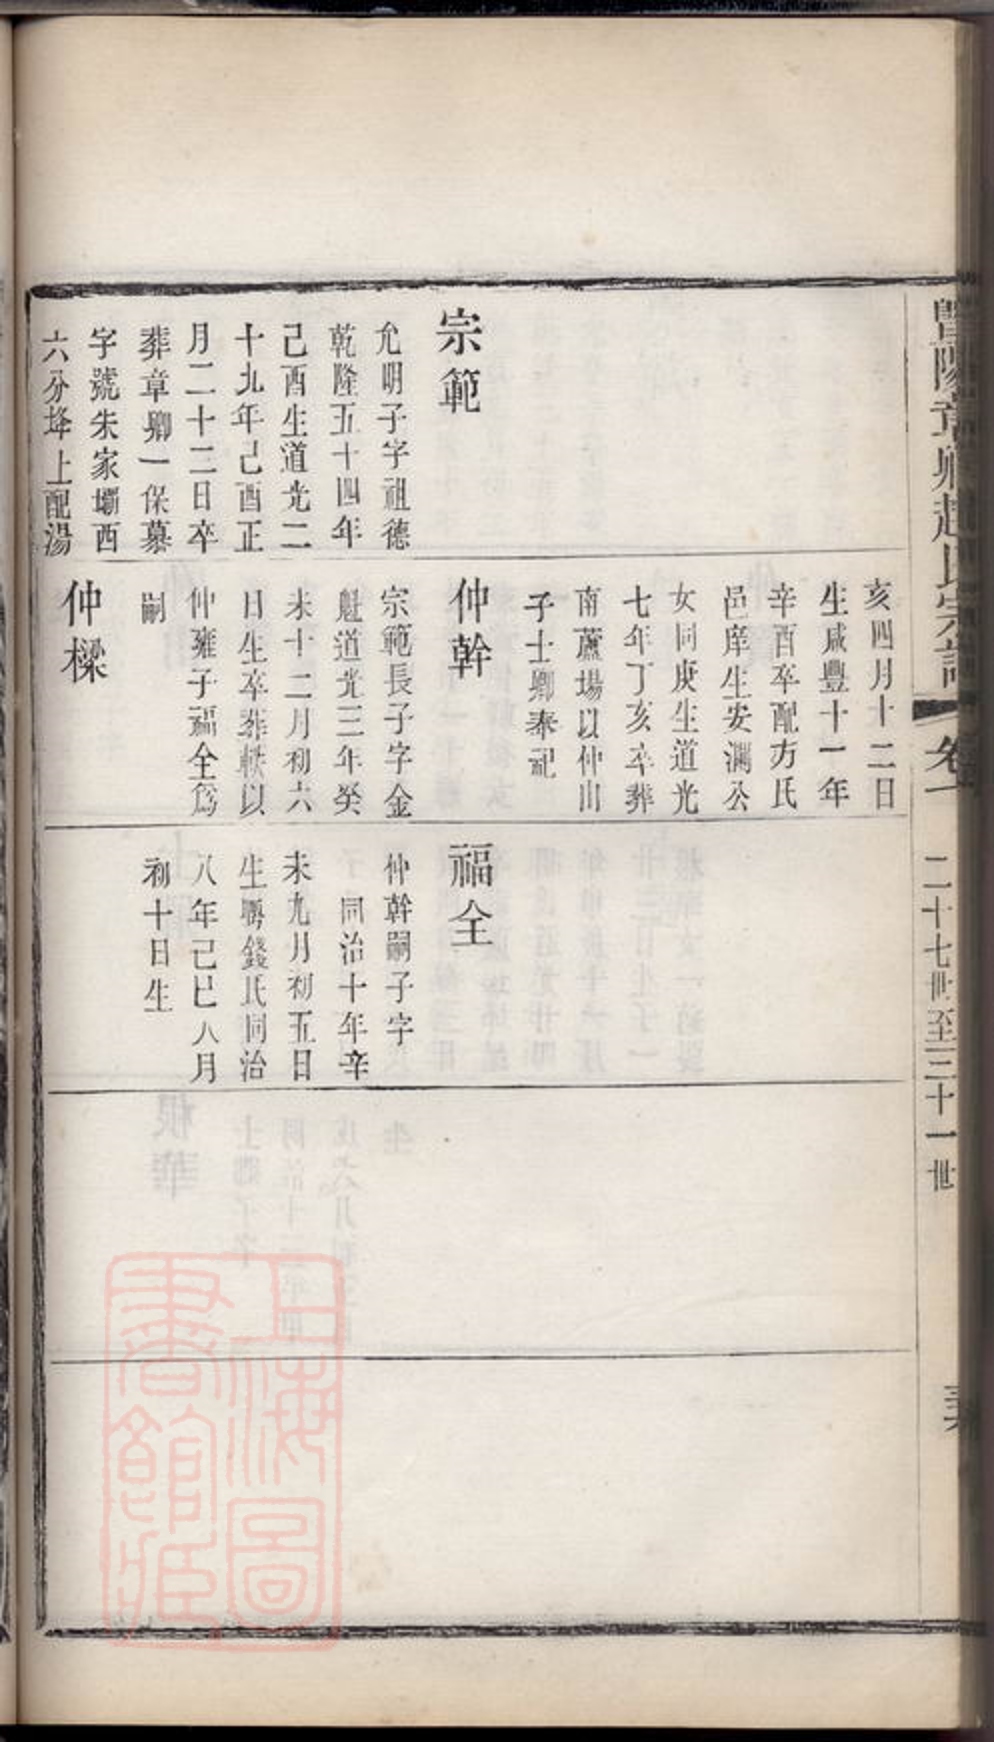 暨陽章卿趙氏宗譜
卷一
二十七世至三十一世
宗範
允明子字祖德
乾隆五十四年
己酉生道光二
十九年己酉正
月二十二日卒
葬章卿一保墓
字號朱家壩西
六分埄上配湯
亥四月十二日
生咸豐十一年
辛酉卒配方氏
邑庠生安瀾公
女同庚生道光
七年丁亥卒葬
南蘆場以仲山
子士卿奉祀
仲幹
宗範長子字金
魁道光三年癸
未十二月初六
日生卒葬軼以
仲雍子福全爲
嗣
仲樑
福全
仲幹嗣子字
同治十年辛
未九月初五日
生聘錢氏同治
八年己巳八月
初十日生
上海圖
書館藏